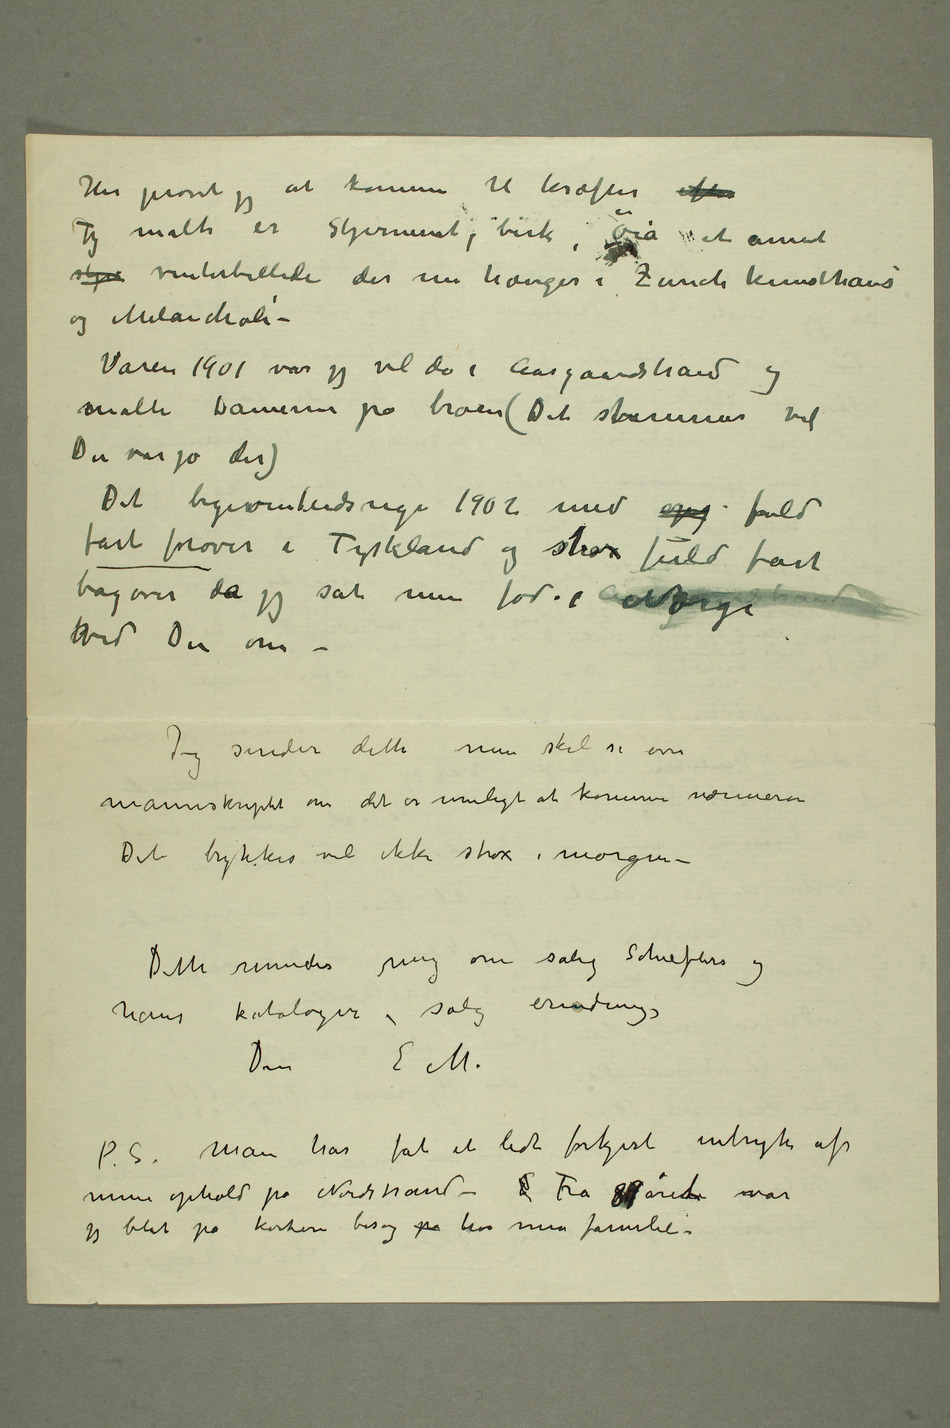 Her prøvet jeg at komme til kræfter efter
Jeg malte er Stjernenat, birk, Öiå et annet
stjer vinterbillede der nu hænger i Zürich kunsthaus
og Melancholi –
Våren 1901 var jeg vel da i Aasgaardstrand og
malte Damerne på broen (Det stemmer vel
Du var jo der)
Det begivenhedsrige 1902 med opg fuld
fart forover i Tyskland og strax fuld fart
bagover da jeg sat min fod i Norge
ved Du om –
Jeg sender dette nu skal se over
manuskriptet om det er muligt at komme nærmere
Det trykkes vel ikke strax i morgen –
Dette minder mig om salig Schieflers og
hans kataloger, salig erindring,
Din E M.
P.S. Man har fåt et lidt forkjert intryk af
mine ophold på Nordstrand – Fra 89 året var
jeg blot på kortere besøg på hos min familie –